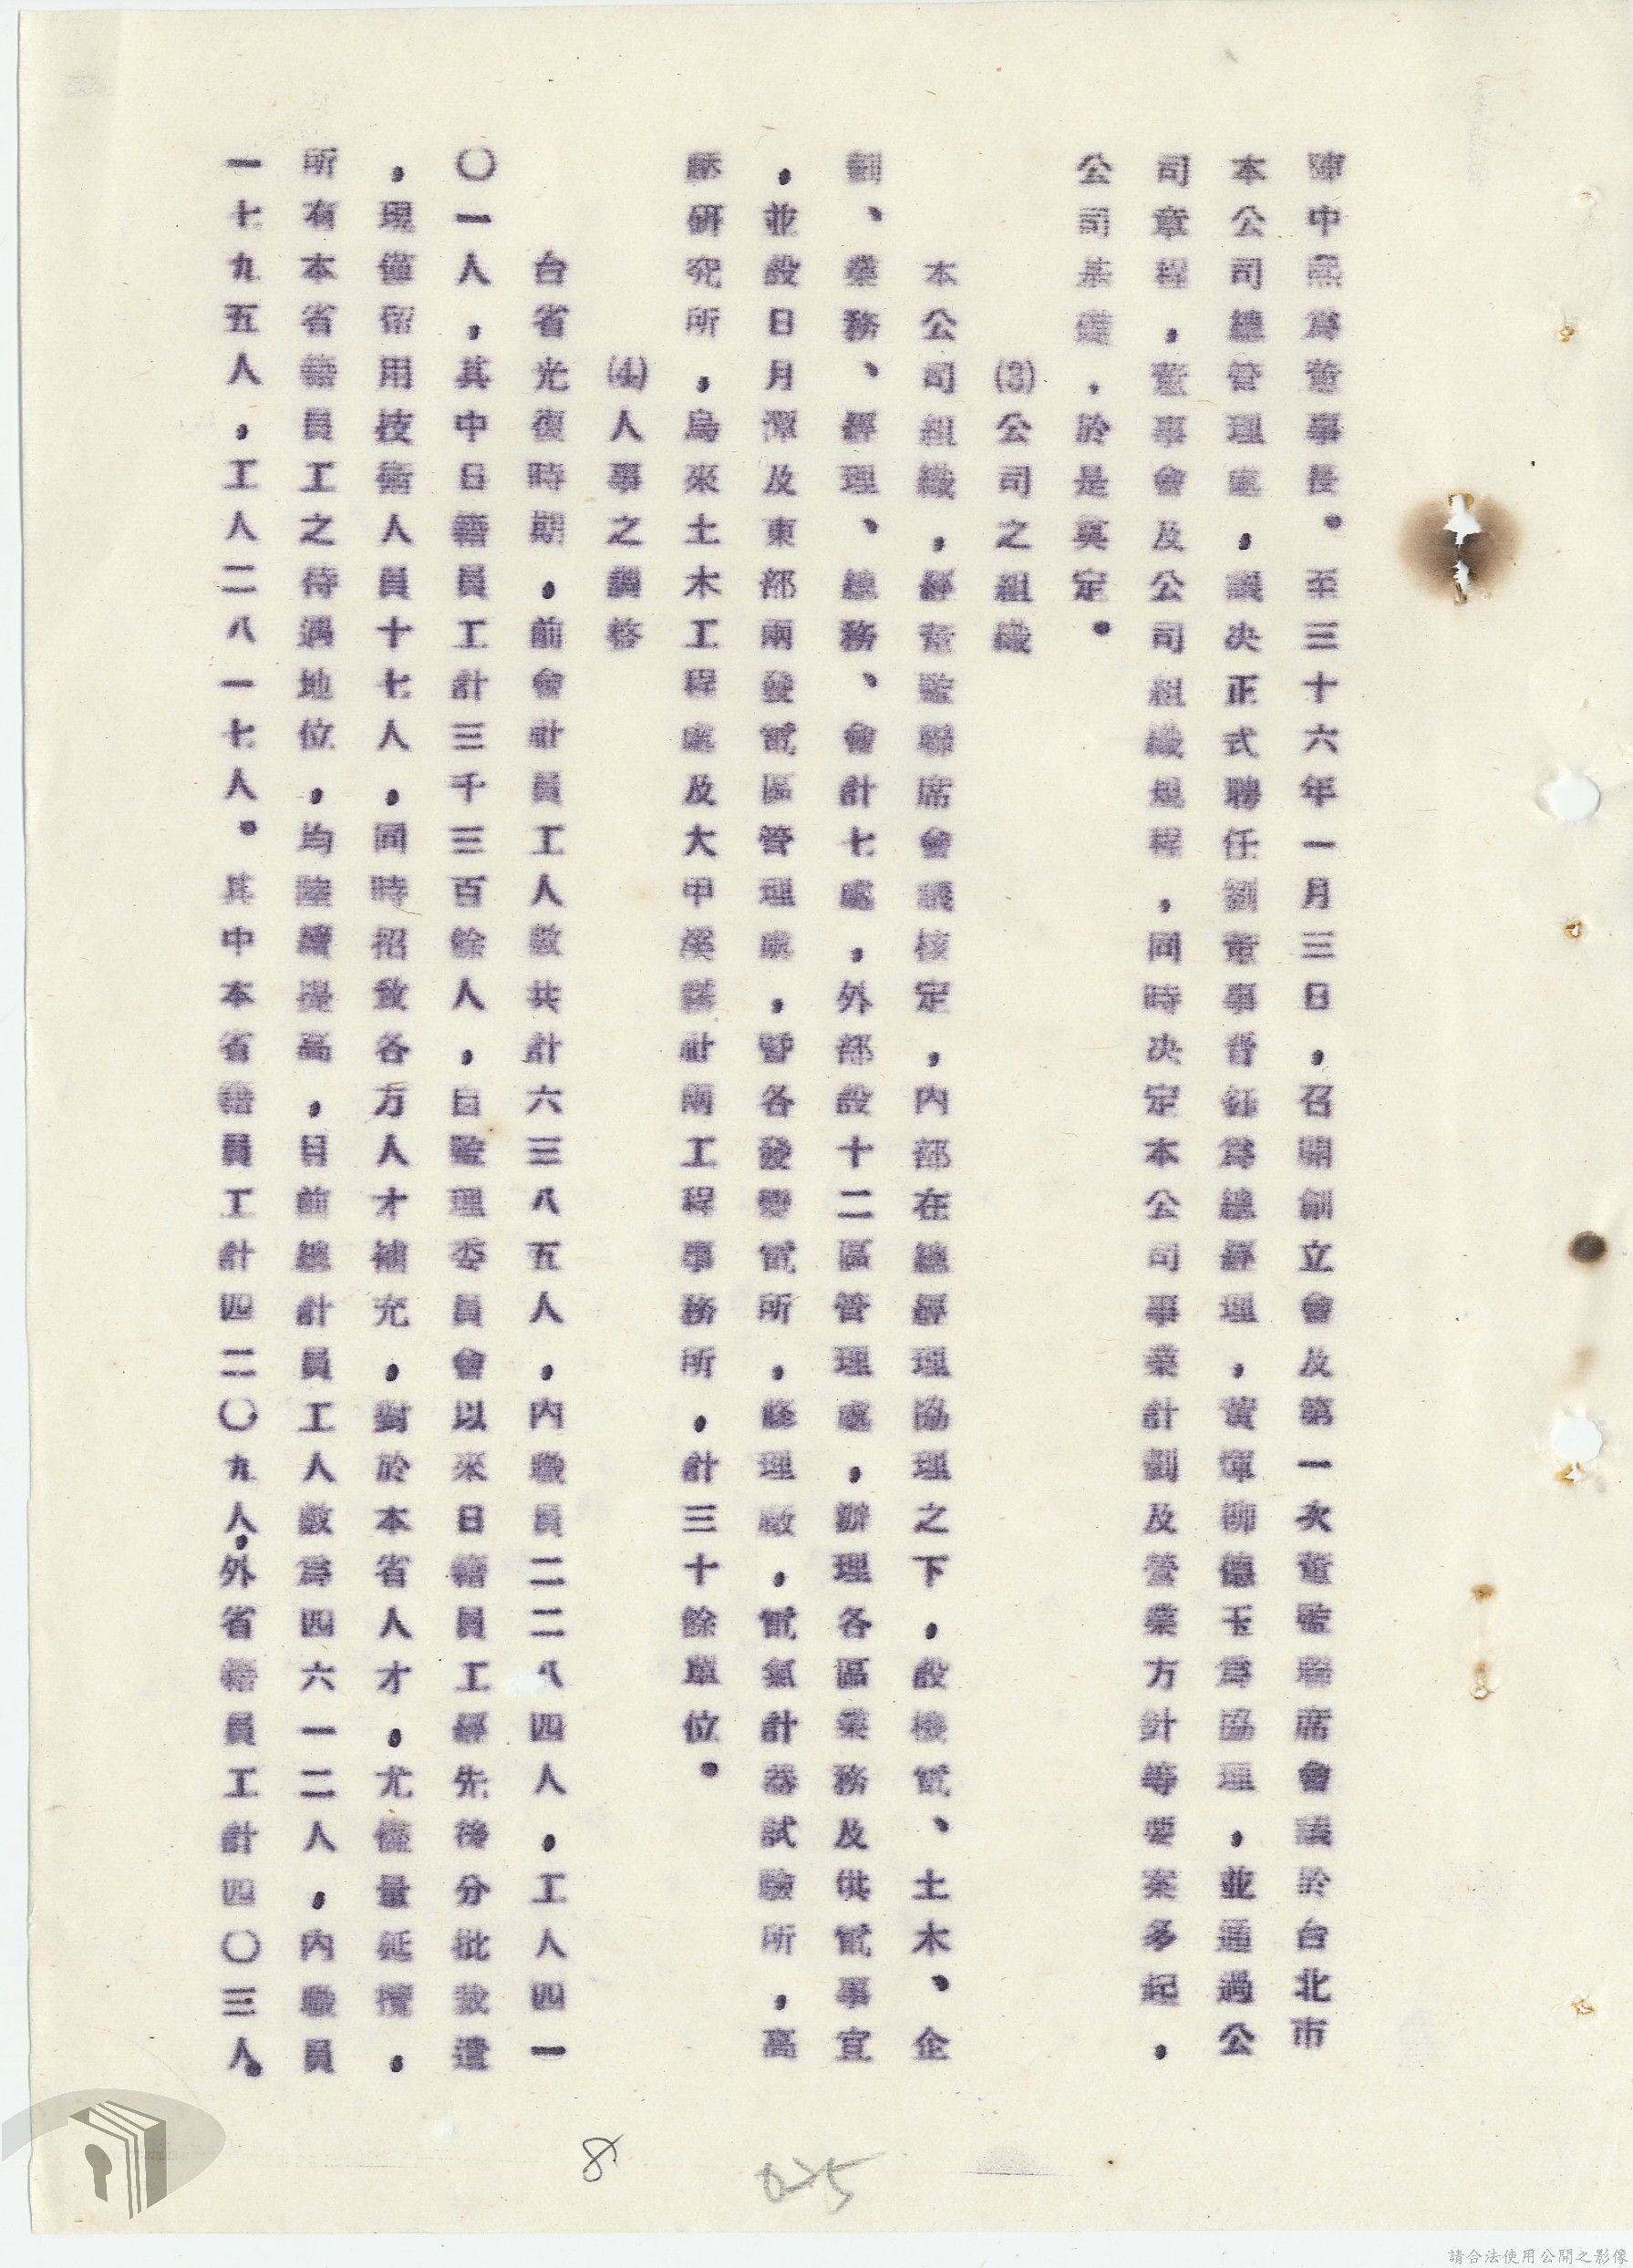 陳中熙爲董事長。至三十六年一月三日，召開創立會及第一次董監聯席會議於台北市
本公司總管理處，議決正式聘任劉董事晉鈺爲總經理，黃煇柳德玉爲協理，並通過公
司章程，董事會及公司組織規程，同時決定本公司事業計劃及營業方針等要案多起，
公司基礎，於是奠定。
⑶公司之組織
本公司組織，經董監聯席會議核定，內部在總經理協理之下，設機電、土木、企
劃、業務、經理、總務、會計七處，外部設十二區管理處，辦理各區業務及供電事宜
，並設日月潭及東部兩發電區管理處，暨各發變電所，修理廠，電氣計器試驗所，高
壓研究所，烏來土木工程處及大甲溪設計兩工程事務所，計三十餘單位。
⑷人事之調整
台省光復時期，前會社員工人數共計六三八五人，內職員二二八四人，工人四一
〇一人，其中日籍員工計三千三百餘人，自監理委員會以來日籍員工經先後分批被遣
，現僅留用技術人員十七人，同時招致各方人才補充，對於本省人才，尤儘量延攬，
所有本省籍員工之待遇地位，均陸續提高，目前總計員工人數爲四六一二人，內職員
一七九五人，工人二八一七人。其中本省籍員工計四二〇九人，外省籍員工計四〇三人。
8
請合法使用公開之影像